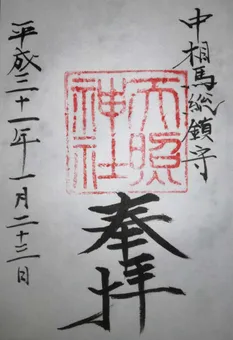 中相馬総鎮守
天照神社
奉拝
平成三十一年一月二十三日